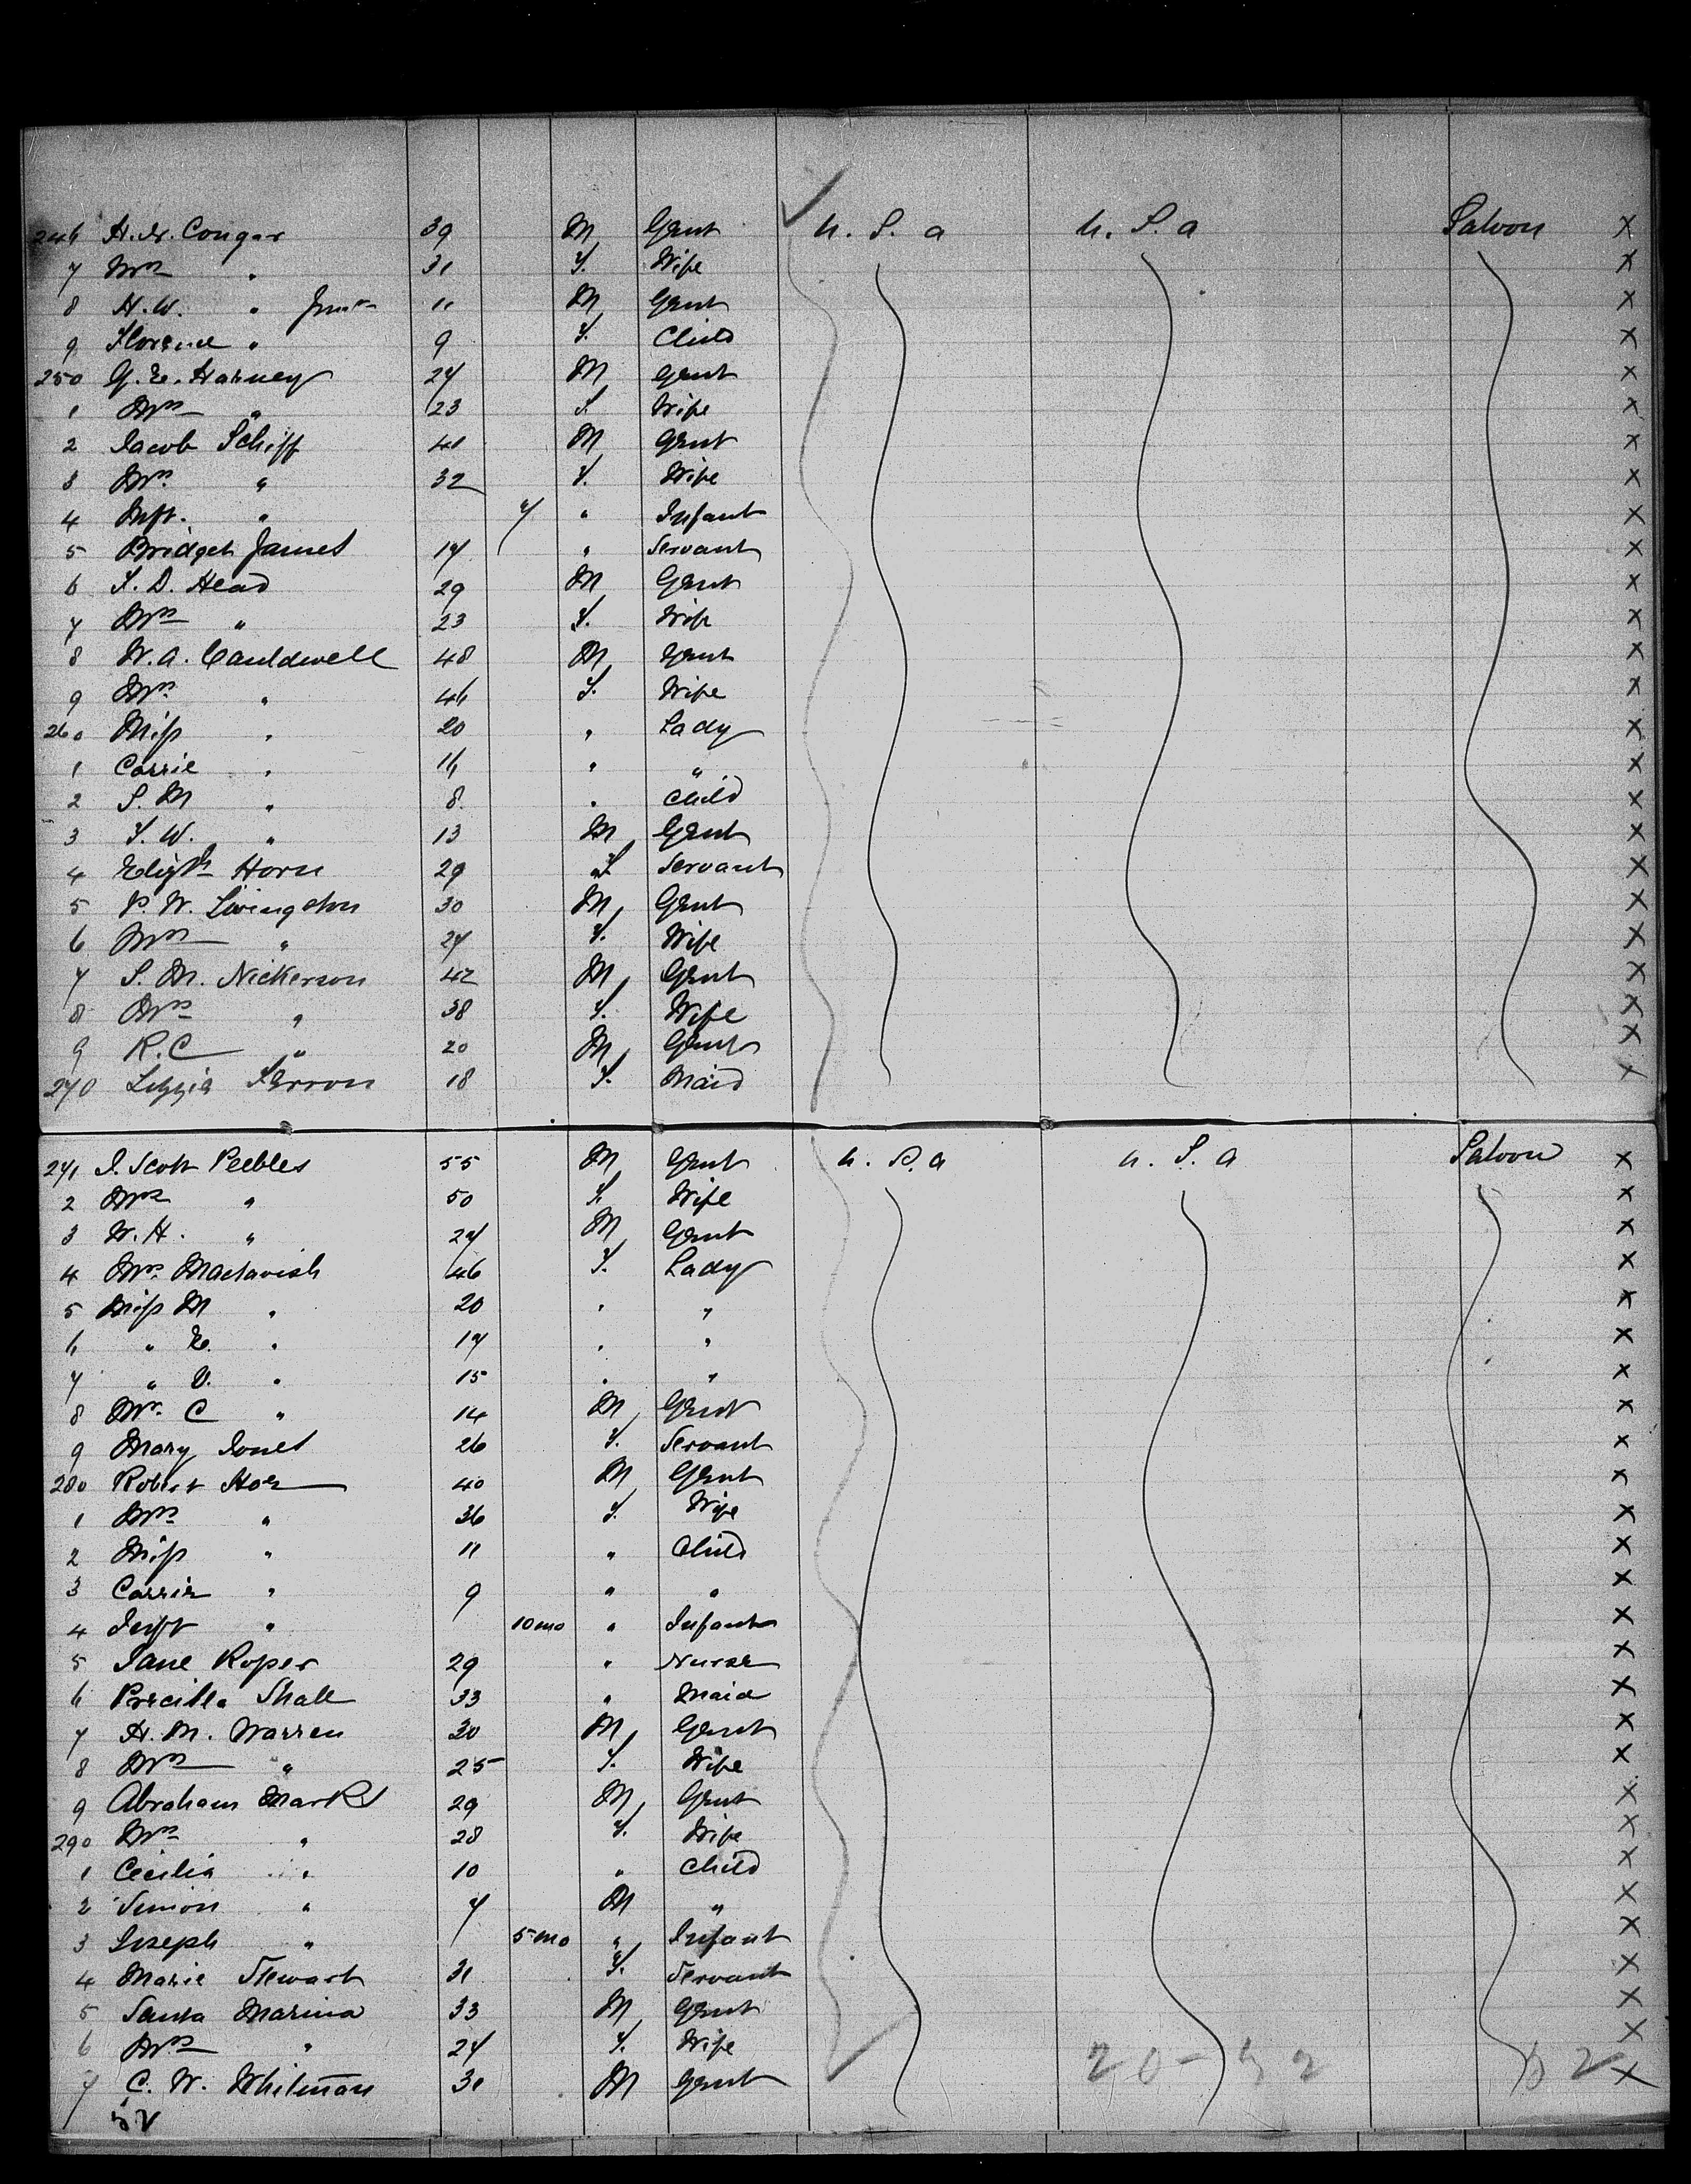 246 H. W. Congar 39 M Gent U. S. a U. S. a Saloon X
7 Mrs " 31 F. Wife X
8 H. W. " Junr 11 M Gent X
9 Florence " 9 F. Child X
250 G. E. Harney 27 M Gent X
1 Mrs " 23 F. Wife X
2 Jacob Schiff 41 M Gent X
3 Mrs " 32 F. Wife X
4 Inft. " 7 " Infant X
5 Bridget James 17 " Servant X
6 F. D. Head 29 M Gent X
7 Mrs " 23 F. Wife X
8 W. A. Cauldwell 48 M Gent X
9 Mrs " 46 F. Wife X
260 Miss " 20 " Lady X
1 Carrie " 16 " " X
2 S. M " 8 " Child X
3 F. W. " 13 M Gent X
4 Elizth Horn 29 F Servant X
5 P. W. Livingston 30 M Gent X
6 Mrs " 27 F. Wife X
7 S. M. Nickerson 42 M Gent X
8 Mrs " 38 F. Wife X
9 R. C " 20 M Gent X
270 Lizzie Ferron 18 F. Maid X
271 J. Scott Peebles 55 M Gent U. S. a U. S. a Saloon X
2 Mrs " 50 F. Wife X
3 W. H. " 27 M Gent X
4 Mrs Mactavish 46 F. Lady X
5 Miss M " 20 " " X
6 " E. " 17 " " X
7 " V. " 15 " " X
8 Mr. C " 14 M Gent X
9 Mary Jones 26 F. Servant X
280 Robert Hoe 40 M Gent X
1 Mrs " 36 F. Wife X
2 Miss " 11 " Child X
3 Carrie " 9 " " X
4 Inft " 10 mo " Infant X
5 Jane Roper 29 " Nurse X
6 Prscilla Shall 33 " Maid X
7 H. M. Warren 30 M Gent X
8 Mrs " 25 F. Wife X
9 Abraham Marks 29 M Gent X
290 Mrs " 28 F. Wife X
1 Cecilia " 10 " Child X
2 Simon " 7 M " X
3 Joseph " 5 mo " Infant X
4 Marie Stewart 31 F. Servant X
5 Santa Marina 33 M Gent X
6 Mrs " 27 F. Wife X
7 C. W. Whitman 31 M Gent 20 - 52 52 X
52